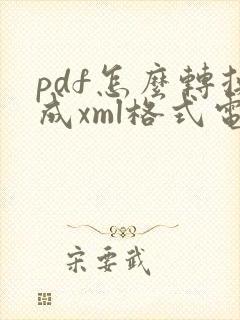 pdf怎麼轉
成xml格式電
宋要武